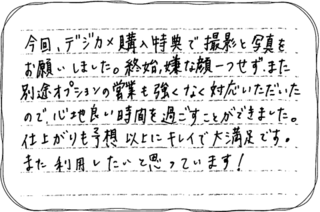 今回、デジカメ購入特典で撮影と写真を
お願いしました。終始、嫌な顔一つせず、また
別途オプションの営業も強くなく対応いただいた
ので、心地良い時間を過ごすことができました。
仕上がりも予想以上にキレイで大満足です。
また利用したいと思っています!